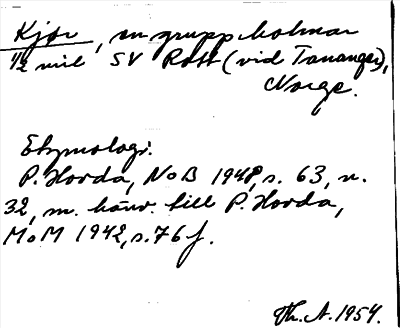 Kjør, en grupp holmar
½ mil SV Rott (vid Tananger),
Norge.
Etymologi:
P. Hovda, NoB 1948, s. 63, n.
32, m. hänv. till P. Hovda,
MoM 1942, s. 76 f.
Th. A. 1954.